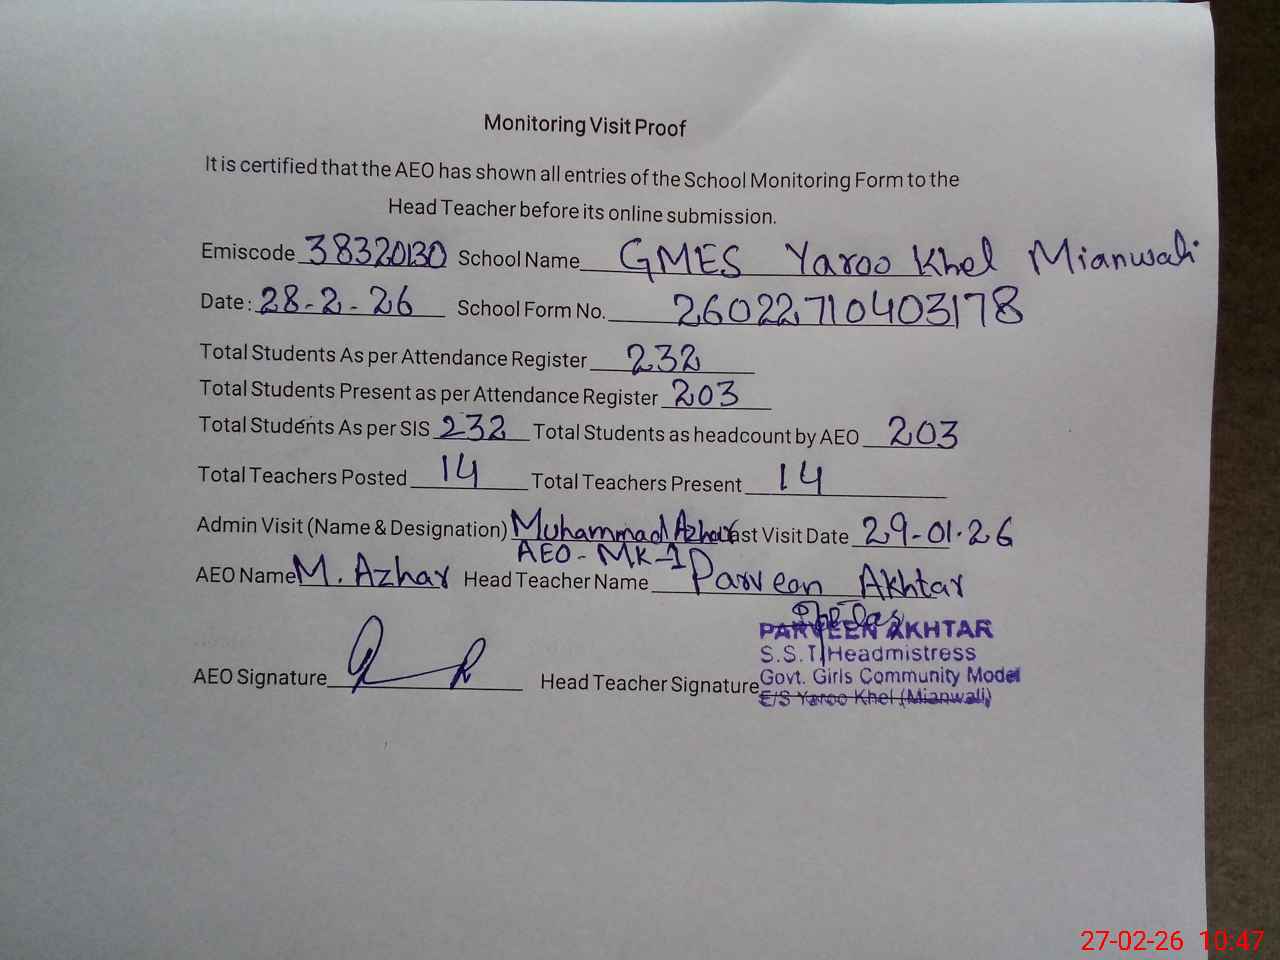 Monitoring Visit Proof
It is certified that the AEO has shown all entries of the School Monitoring Form to the
Head Teacher before its online submission.
Emiscode 38320130 School Name GMES Yaroo Khel Mianwali
Date: 28-2-26 School Form No. 26022710403178
Total Students As per Attendance Register 232
Total Students Present as per Attendance Register 203
Total Students As per SIS 232 Total Students as headcount by AEO 203
Total Teachers Posted 14 Total Teachers Present 14
Admin Visit (Name & Designation) Muhammad Azhar Last Visit Date 29-01-26
AEO - MK-1
AEO Name M. Azhar Head Teacher Name Parveen Akhtar
PARVEEN AKHTAR
S.S.T/Headmistress
AEO Signature Head Teacher Signature Govt. Girls Community Model
E/S Yaroo Khel (Mianwali)
27-02-26 10:47